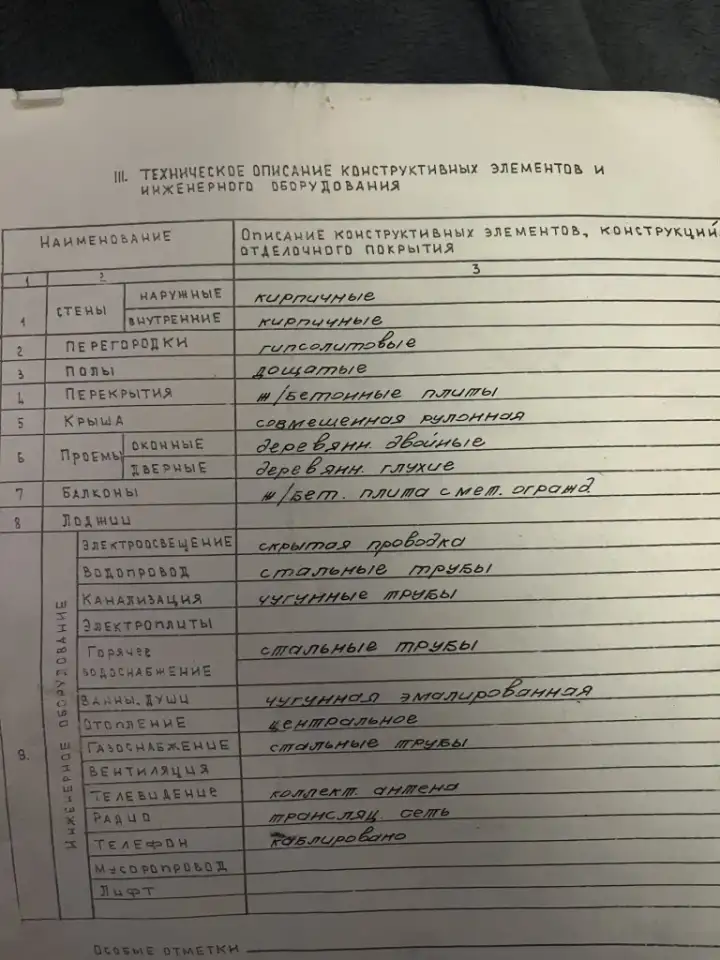 III. ТЕХНИЧЕСКОЕ ОПИСАНИЕ КОНСТРУКТИВНЫХ ЭЛЕМЕНТОВ И
ИНЖЕНЕРНОГО ОБОРУДОВАНИЯ
НАИМЕНОВАНИЕ
ОПИСАНИЕ КОНСТРУКТИВНЫХ ЭЛЕМЕНТОВ, КОНСТРУКЦИЙ
ОТДЕЛОЧНОГО ПОКРЫТИЯ
1 2 3
1 СТЕНЫ НАРУЖНЫЕ кирпичные
ВНУТРЕННИЕ кирпичные
2 ПЕРЕГОРОДКИ гипсолитовые
3 ПОЛЫ дощатые
4 ПЕРЕКРЫТИЯ ж/бетонные плиты
5 КРЫША совмещенная рулонная
6 ПРОЕМЫ ОКОННЫЕ деревянн. двойные
ДВЕРНЫЕ деревянн. глухие
7 БАЛКОНЫ ж/бет. плита с мет. огражд.
8 ЛОДЖИИ
9. ИНЖЕНЕРНОЕ ОБОРУДОВАНИЕ
ЭЛЕКТРООСВЕЩЕНИЕ скрытая проводка
ВОДОПРОВОД стальные трубы
КАНАЛИЗАЦИЯ чугунные трубы
ЭЛЕКТРОПЛИТЫ
ГОРЯЧЕЕ стальные трубы
ВОДОСНАБЖЕНИЕ
ВАННЫ, ДУШИ чугунная эмалированная
ОТОПЛЕНИЕ центральное
ГАЗОСНАБЖЕНИЕ стальные трубы
ВЕНТИЛЯЦИЯ
ТЕЛЕВИДЕНИЕ коллект. антена
РАДИО трансляц. сеть
ТЕЛЕФОН каблировано
МУСОРОПРОВОД
ЛИФТ
ОСОБЫЕ ОТМЕТКИ